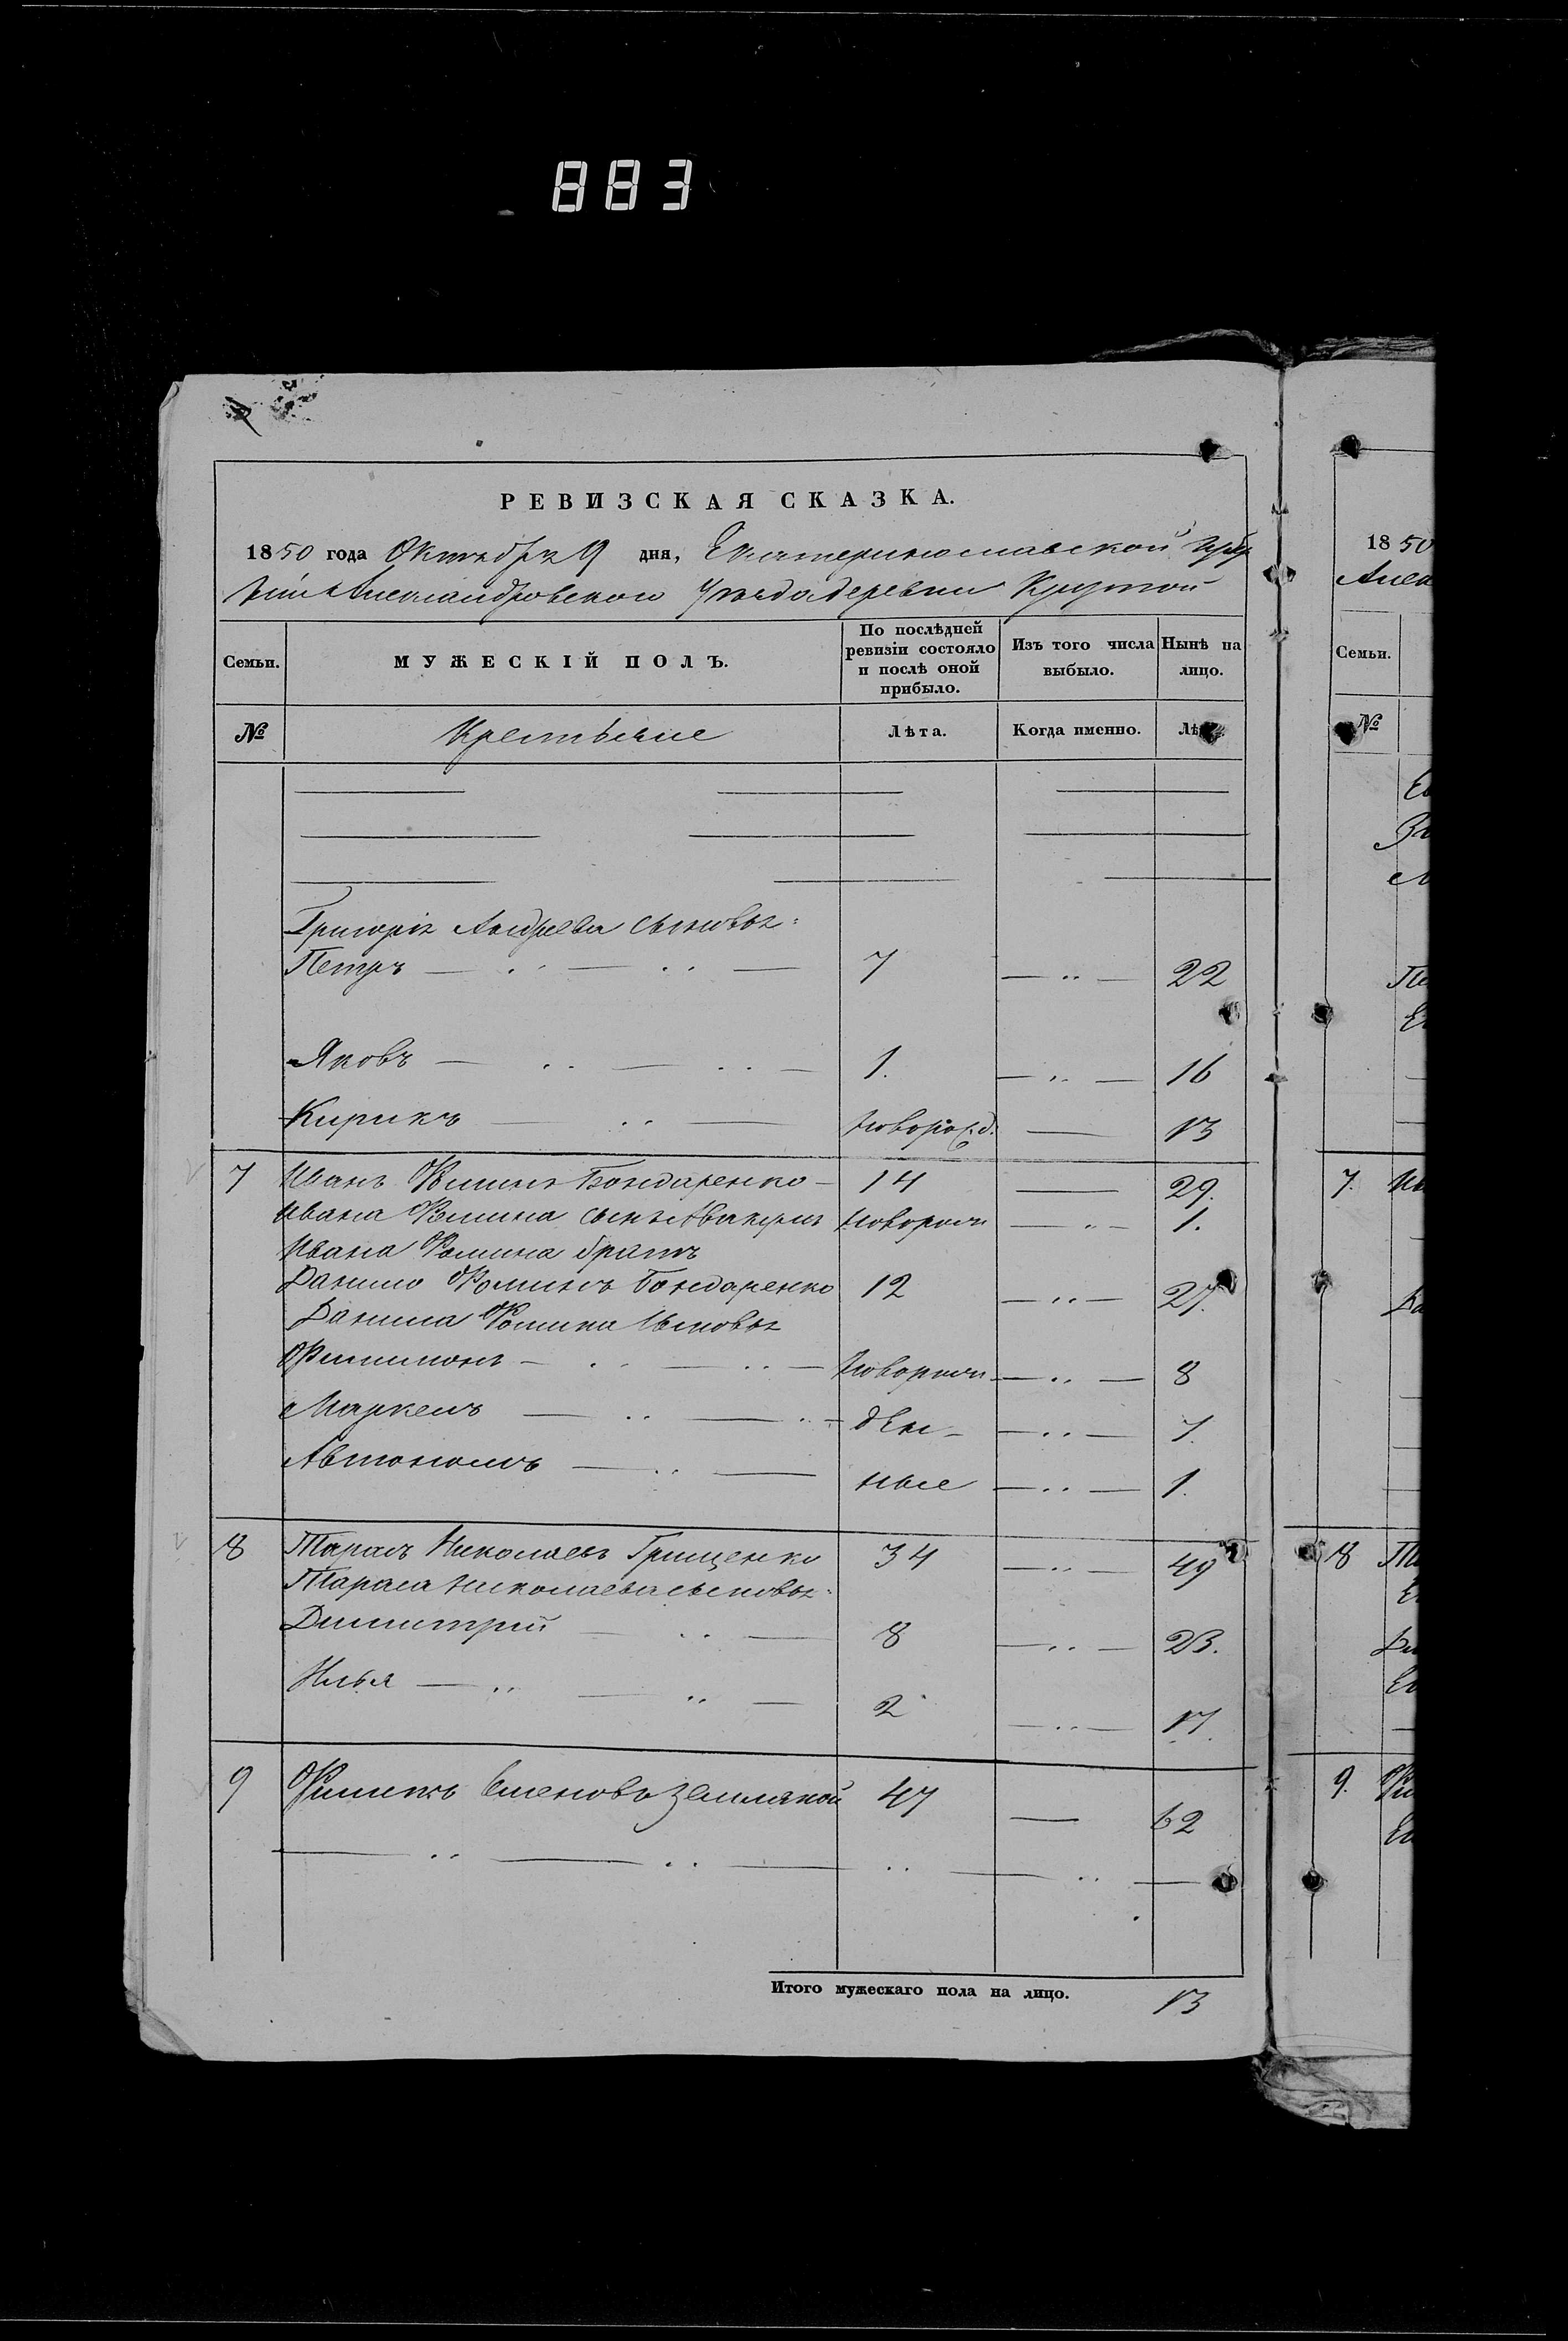 883
РЕВИЗСКАЯ СКАЗКА.
1850 года Октября 9 дня, Екатеринославской Губер
ніи Александровскаго Уѣзда деревни Крутой
Семьи. МУЖЕСКІЙ ПОЛЪ. По послѣдней ревизіи состояло и послѣ оной прибыло. Изъ того числа выбыло. Нынѣ на лицо.
№ Крестьяне Лѣта. Когда именно. Лѣта.
Григорія Андреева сыновья:
Петръ 7 22
Яковъ 1. 16
Кирикъ новорожд. 13
7 Иванъ Фоминъ Бондаренко 14 29.
Ивана Фомина сынъ Авакумъ новорож 1.
Ивана Фомина братъ
Данило Фоминъ Бондаренко 12 27.
Данила Фомина сыновья
Филимонъ новорож 8
Маркелъ ден 7.
Автономъ ные 1.
8 Тарасъ Николаевъ Грищенко 34 49
Тараса Николаева сыновья:
Димитрій 8 23.
Илья 2 17.
9 Филипъ Семеновъ Земляной 47 62
Итого мужескаго пола на лицо. 13
1850
Алек
Семьи.
№
Пе
7. Ив
8 Та
9. Фи